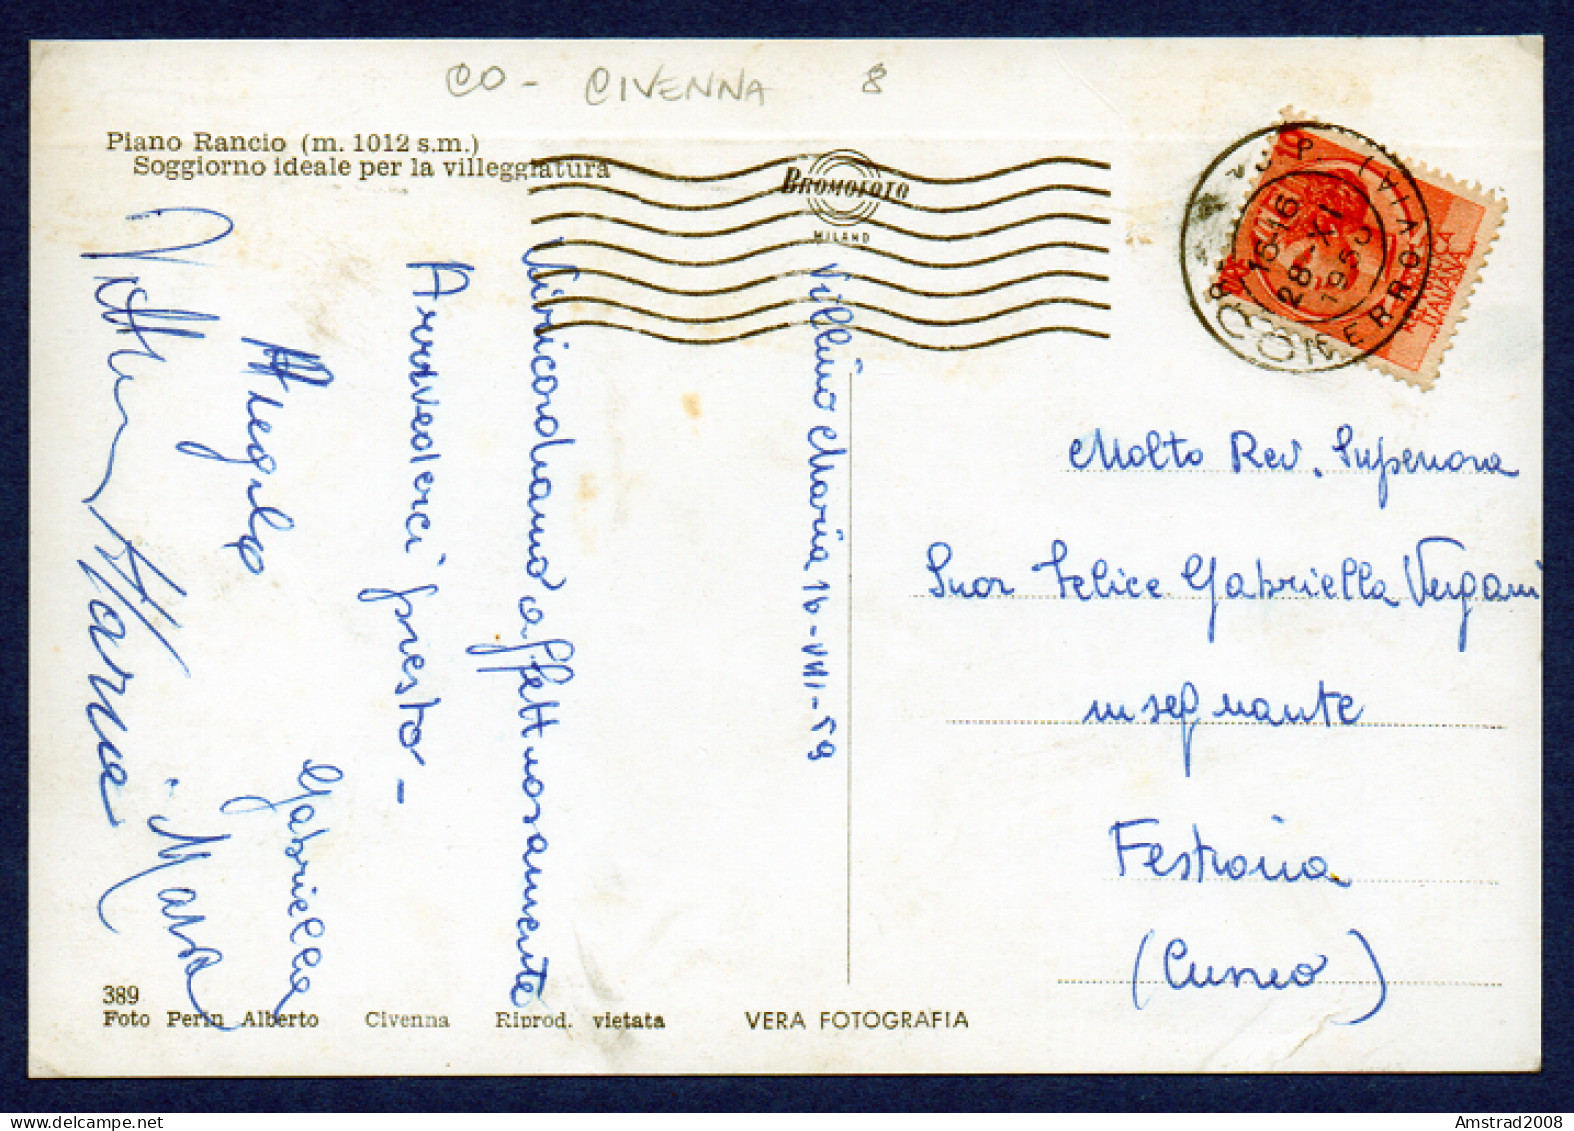 CO - CIVENNA 8
Piano Rancio (m. 1012 s.m.)
Soggiorno ideale per la villeggiatura
BROMOFOTO
MILANO
15-16
28 -XI
ITALIANA
Villino Maria 16-VIII-59
Vi ricordiamo affettuosamente
Arrivederci presto -
Gabriella
Angelo
Maria
Molto Rev. Superiora
Suor Felice Gabriella Vergani
insegnante
Festiona
(Cuneo)
389
Foto Perin Alberto Civenna Riprod. vietata VERA FOTOGRAFIA
Amstrad2008